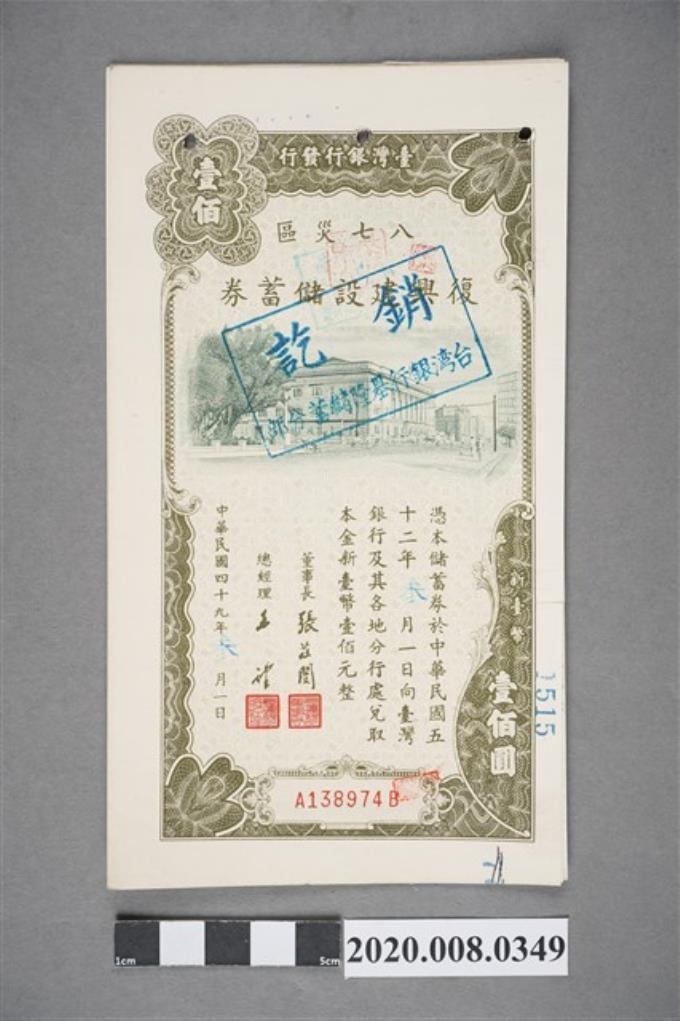 臺灣銀行發行
壹佰
八七災區
復興建設儲蓄券
銷訖
台湾銀行基隆儲蓄分部
憑本儲蓄券於中華民國五
十二年叁月一日向臺灣
銀行及其各地分行處兌取
本金新臺幣壹佰元整
董事長 張茲闓
總經理 王鍾
中華民國四十九年叁月一日
新臺幣
壹佰圓
515
A138974B
1cm
5cm
2020.008.0349